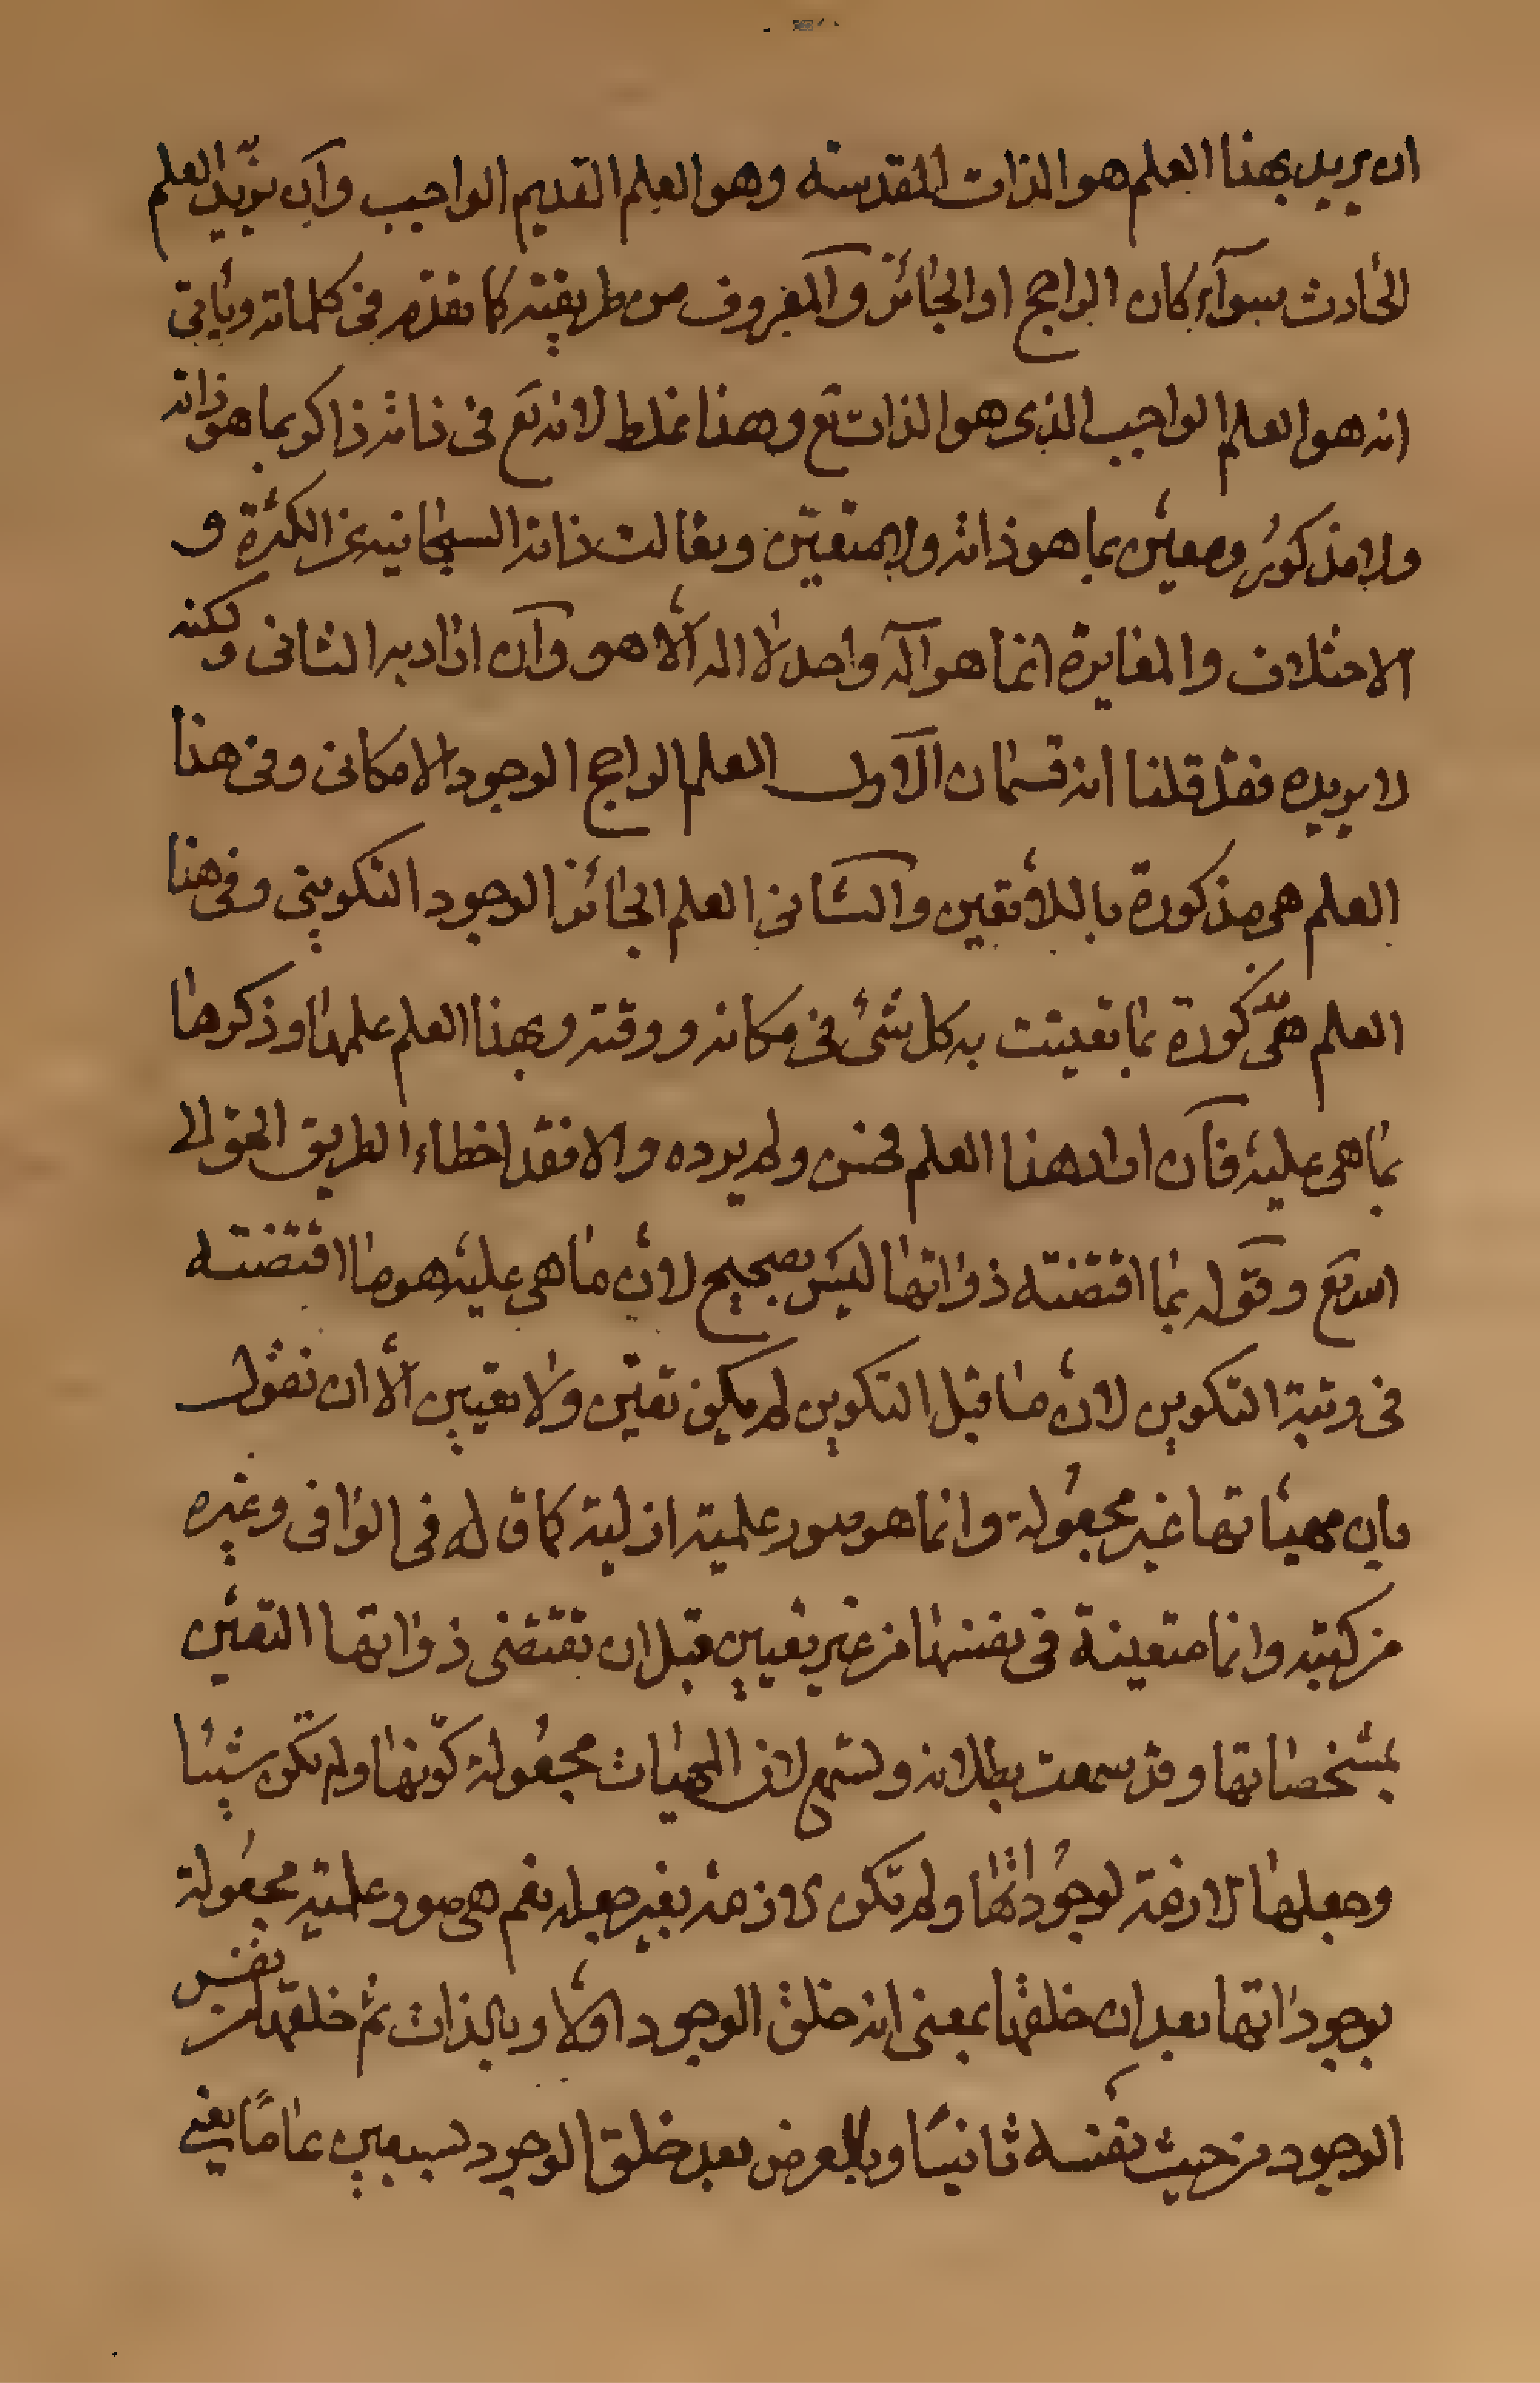 ان يريد بهذا العلم هو الذات المقدسته وهو العلم القديم الواجب وان يريد العلم
الحادث سوآء كان الراجح او الجائز والمعروف من طريقته كما تقدم في كلماته وياتي
انه هو العلم الواجب الذي هو الذات تع وهذا غلط لانه تع في ذاته ذاكر بما هو ذاته
ولا مذكور ومعيّن بما هو ذاته ولا متعيّن وتعالت ذاته السبحانية عن الكثرة و
الاختلاف والمغايرة انما هو آله واحد لا اله الّا هو وان اراد به الثاني ولكنه
لا يريده فقد قلنا انه قسمان الاول العلم الراجح الوجود الامكاني وفي هذا
العلم هي مذكورة باللاتعين والثاني العلم الجائز الوجود التكويني وفي هذا
العلم هي مذكورة بما تعينت به كل شئ في مكانه ووقته وبهذا العلم علمها وذكرها
بما هي عليه فان اراد هذا العلم فحسن ولم يرده والا فقد اخطاء الطريق الحق الى
الله تع وقوله بما اقتضته ذواتها ليس بصحيح لانّ ما هي عليه هو ما اقتضته
في رتبة التكوين لانّ ما قبل التكوين لم يكن تعيّن ولا تعيين الّا ان نقول
بان مهياتها غير مجعولة وانما هو صور علمية ازلية كما قاله في الوافي وغيره
من كتبه وانها متعينة في نفسها من غير تعيين قبل ان تقتضي ذواتها التعيّن
بمشخصاتها وقد سمعت بطلانه وتسمع لان المهيات مجعولة كوّنها ولم تكن شيئا
وجعلها لازمة لوجوداتها ولم تكن لازمة بغير جعله نعم هي صور علمية مجعولة
بوجوداتها بعد ان خلقها بمعنى انه خلق الوجود اوّلا وبالذات ثم خلقها من نفس
الوجود من حيث نفسه ثانيًا وبالعرض بعد خلق الوجود بسبعين عامًا يعني